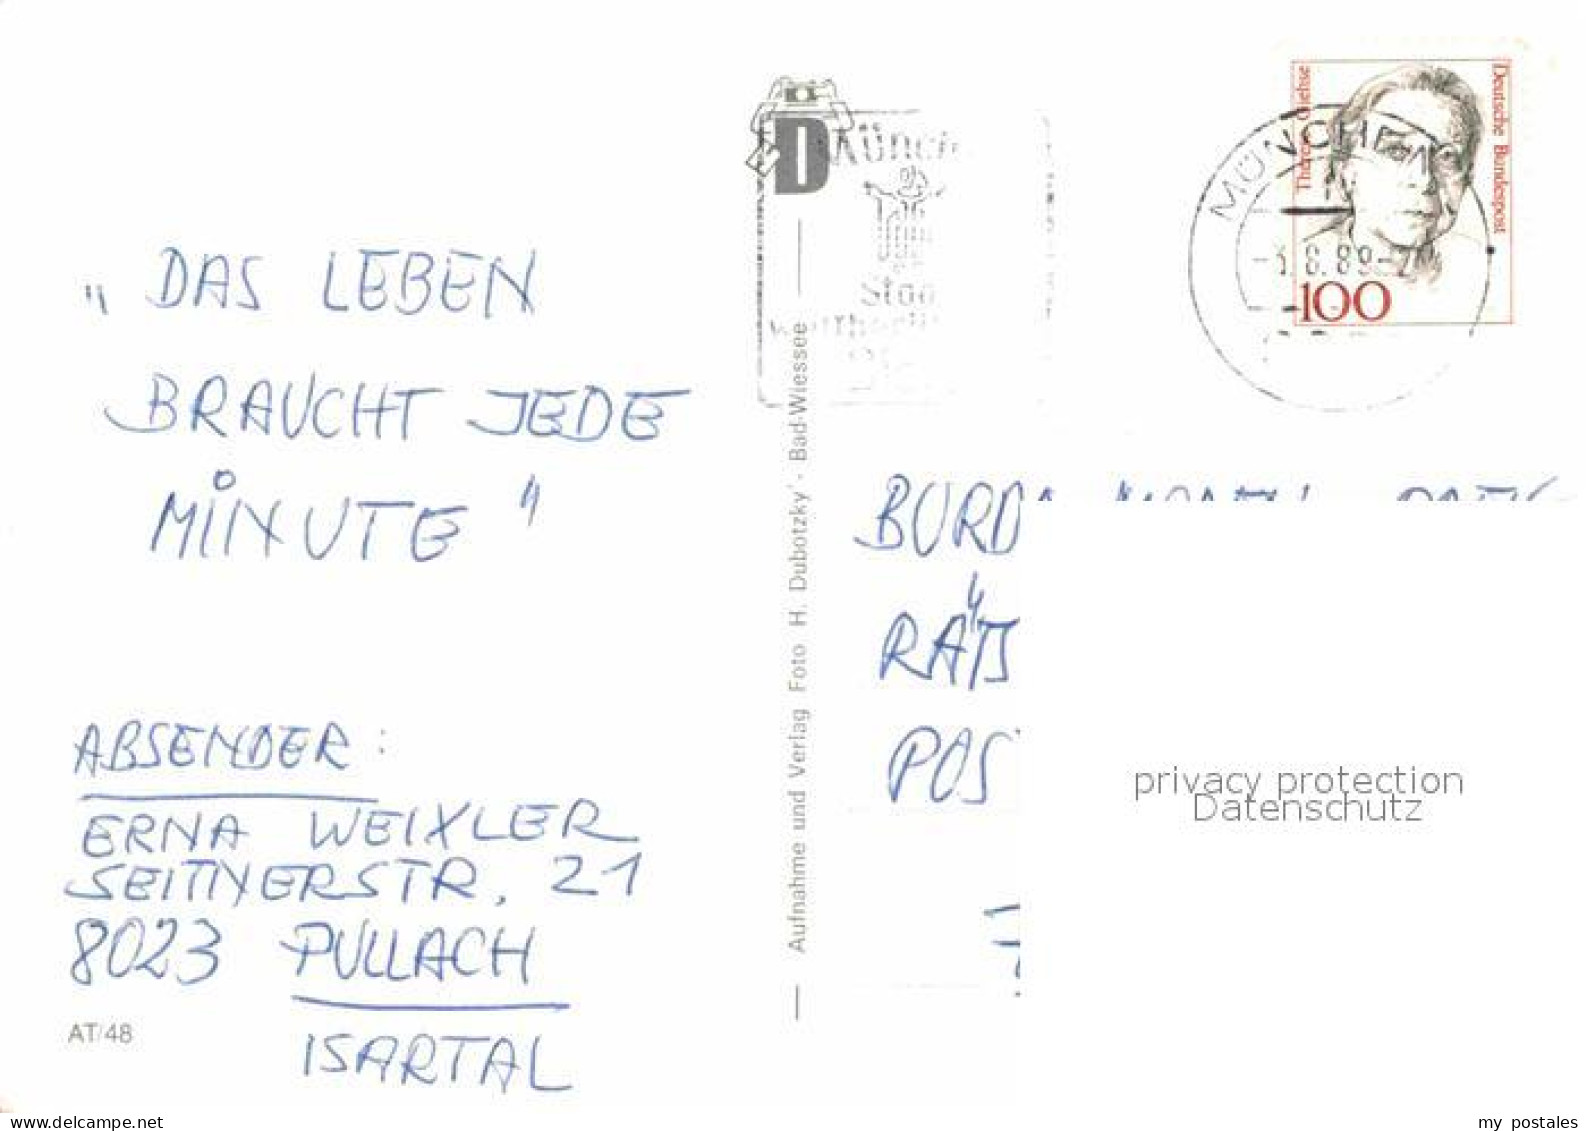 „DAS LEBEN
BRAUCHT JEDE
MINUTE"
ABSENDER:
ERNA WEIXLER
SEITNERSTR. 21
8023 PULLACH
ISARTAL
AT/48
Aufnahme und Verlag Foto H. Dubotzky · Bad-Wiessee
D
MÜNCHEN
Deutsche Bundespost
100
BURDA
RÄTS
POS
privacy protection
Datenschutz
www.delcampe.net
my_postales